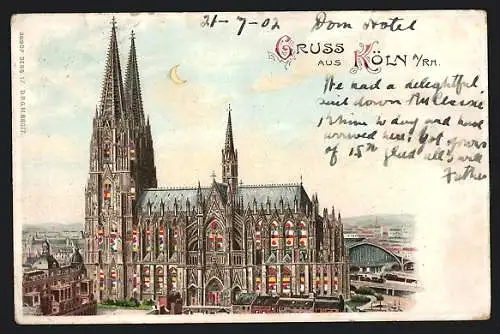 21-7-02 Dom Hotel
GRUSS
AUS KÖLN A/RH.
We had a delightful
sail down the
Rhine to day and have
arrived here: Got yours
of 15th glad all well
Father